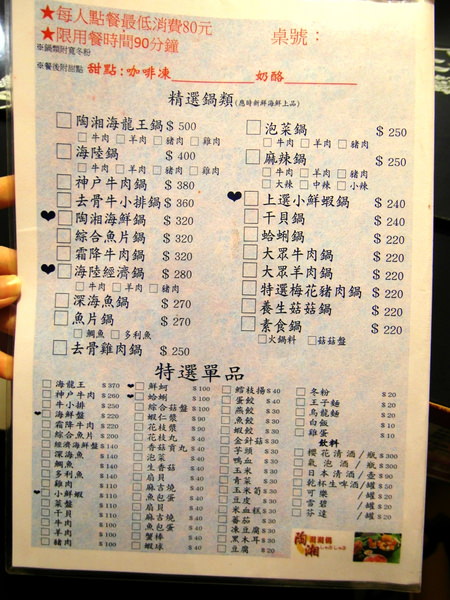 ★每人點餐最低消費80元
★限用餐時間90分鐘
桌號：
※鍋類附寬冬粉
※餐後附甜點 甜點:咖啡凍 奶酪
精選鍋類(應時新鮮海鮮上品)
陶湘海龍王鍋 $ 500
牛肉 羊肉 豬肉 雞肉
海陸鍋 $ 400
牛肉 羊肉 豬肉 雞肉
神戶牛肉鍋 $ 380
去骨牛小排鍋 $ 360
陶湘海鮮鍋 $ 320
綜合魚片鍋 $ 320
霜降牛肉鍋 $ 320
海陸經濟鍋 $ 280
牛肉 羊肉 豬肉
深海魚鍋 $ 270
魚片鍋 $ 270
鯛魚 多利魚
去骨雞肉鍋 $ 250
泡菜鍋 $ 250
牛肉 羊肉 豬肉
麻辣鍋 $ 250
牛肉 羊肉 豬肉
大辣 中辣 小辣
上選小鮮蝦鍋 $ 240
干貝鍋 $ 240
蛤蜊鍋 $ 220
大眾牛肉鍋 $ 220
大眾羊肉鍋 $ 220
特選梅花豬肉鍋 $ 220
養生菇菇鍋 $ 220
素食鍋 $ 220
火鍋料 菇菇盤
特選單品
海龍王 $ 370
神戶牛肉 $ 260
牛小排 $ 230
海鮮盤 $ 220
霜降牛肉 $ 220
綜合魚片 $ 200
經濟海鮮盤 $ 150
深海魚 $ 150
鯛魚 $ 150
多利魚 $ 150
雞肉 $ 110
小鮮蝦 $ 110
菜盤 $ 110
干貝 $ 110
牛肉 $ 100
羊肉 $ 100
豬肉 $ 100
鮮蚵 $ 100
蛤蜊 $ 100
綜合菇盤 $ 100
蝦仁漿 $ 90
花枝漿 $ 90
花枝丸 $ 40
香菇貢丸 $ 40
泡菜
生香菇
扇貝
麻吉燒
魚包蛋
扇貝
麻吉燒
魚包蛋
蟹棒
蝦球
鱈枝揚 $ 40
蛋餃 $ 40
燕餃 $ 40
魚餃 $ 40
蝦餃 $ 30
金針菇 $ 30
芋頭 $ 30
鴨血 $ 30
玉米 $ 30
青菜 $ 30
玉米筍 $ 30
豆皮 $ 30
米血糕 $ 30
蕃茄 $ 20
凍豆腐 $ 30
黑木耳 $ 30
豆腐 $ 20
冬粉 $ 20
王子麵 $ 20
烏龍麵 $ 20
白飯 $ 10
雞蛋 $ 10
飲料
櫻花清酒/瓶 $300
氣泡酒/瓶 $300
日本清酒/壺 $ 90
乾杯生啤酒/罐 $ 20
可樂/罐 $ 20
雪碧/罐 $ 20
芬達/罐 $ 20
陶湘